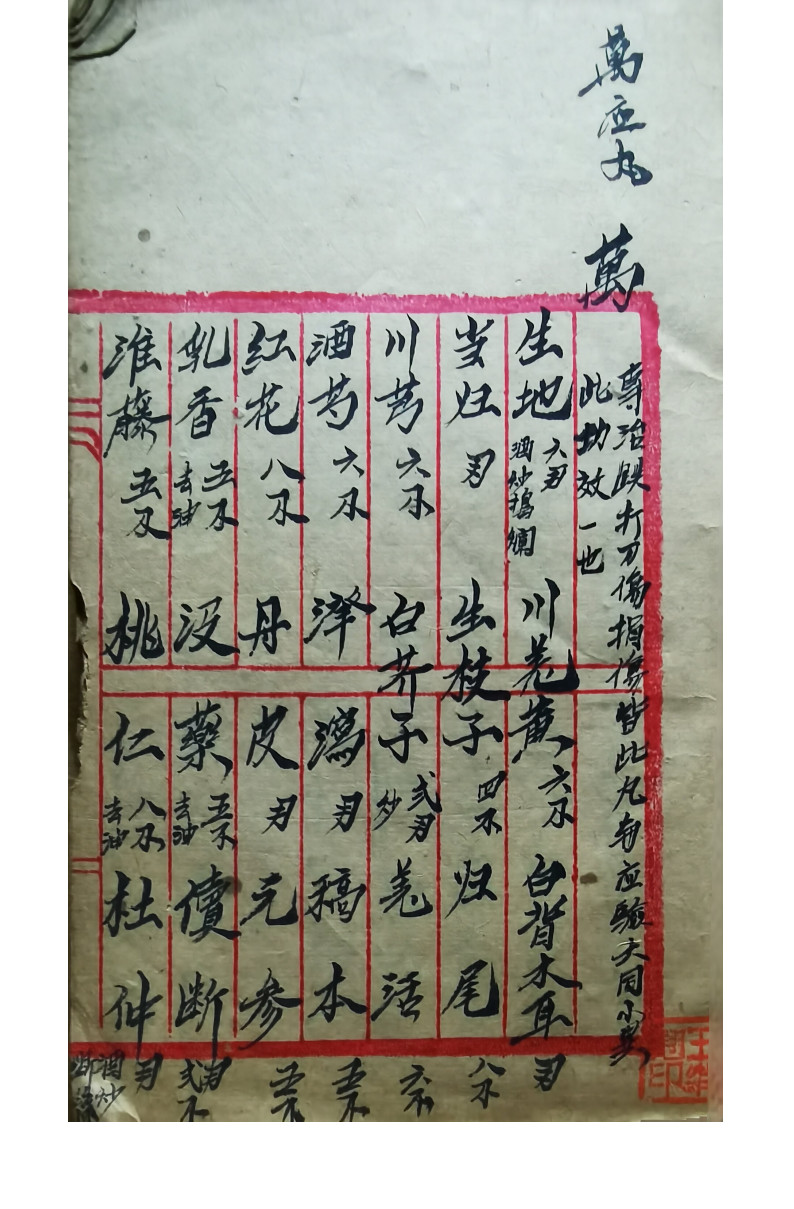 萬应丸
萬
專治跌打刀傷損傷皆此丸
应驗大同小異
此功效一也
生地 六刄 酒炒 川羗黄 六不 白背木耳 刄
当归 刄 生枝子 四不 归尾 八不
川芎 六不 白芥子 弍刄 炒 羗活 六不
酒芍 六不 泽瀉 刄 稿本 五不
红花 八不 丹皮 刄 元参 五不
乳香 五不 去油 没藥 五不 去油 續断 刄弍不
淮藤 五刄 桃仁 八不 去油 杜仲 刄 酒炒断